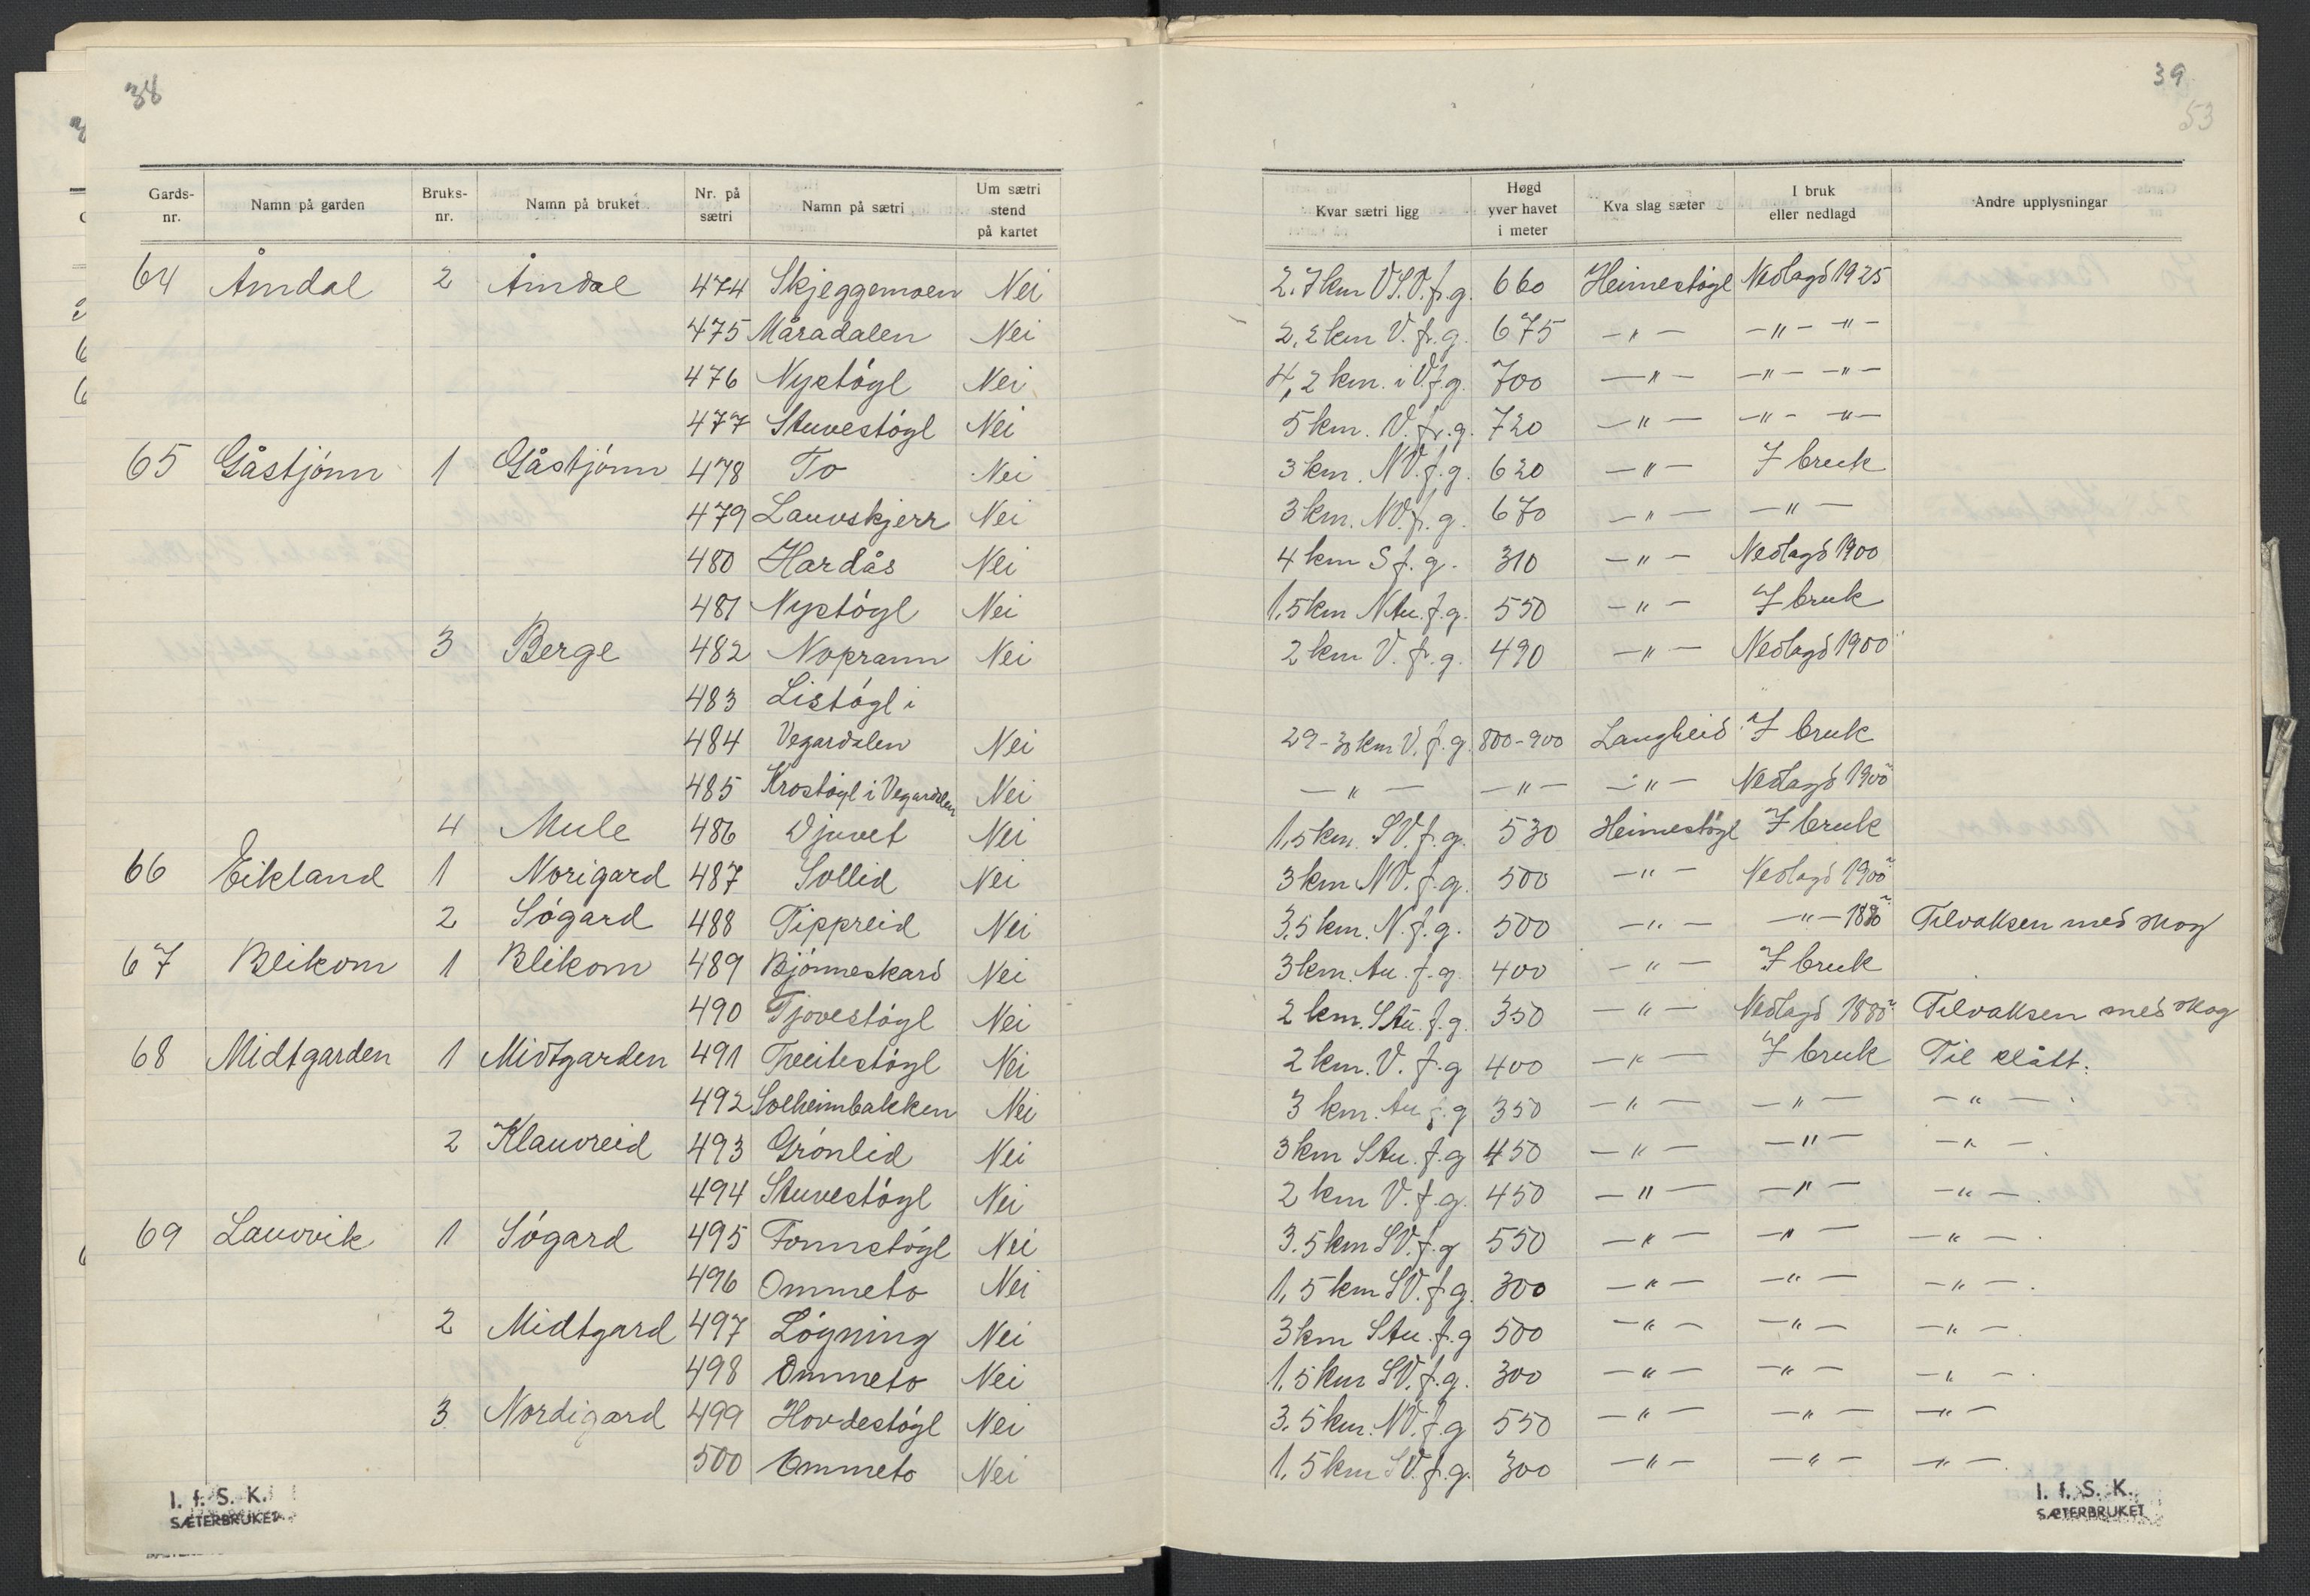 38
Gards-nr. Namn på garden Bruks-nr. Namn på bruket Nr. på sætri Namn på sætri Um sætri stend på kartet
64 Åmdal 2 Åmdal 474 Skjeggemoen Nei
475 Måradalen Nei
476 Nystógl Nei
477 Stuvestógl Nei
65 Gåstjónn 1 Gåstjónn 478 To Nei
479 Lauvskjerr Nei
480 Hardås Nei
481 Nystógl Nei
3 Berge 482 Noprann Nei
483 Listógl i
484 Vegardalen Nei
485 Krostógl i Vegardalen Nei
4 Mule 486 Djuvet Nei
66 Eikland 1 Norigard 487 Sollid Nei
2 Sógard 488 Tippreid Nei
67 Blikom 1 Blikom 489 Bjónneskard Nei
490 Tjovestógl Nei
68 Midtgarden 1 Midtgarden 491 Tveitestógl Nei
492 Solheimbakken Nei
2 Klauvreid 493 Grónlid Nei
494 Stuvestógl Nei
69 Lauvvik 1 Sógard 495 Fonnstógl Nei
496 Ommeto Nei
2 Midtgard 497 Lógning Nei
498 Ommeto Nei
3 Nordigard 499 Hovdestógl Nei
500 Ommeto Nei
I. f. S. K.
SÆTERBRUKET
39
53
Kvar sætri ligg Høgd yver havet i meter Kva slag sæter I bruk eller nedlagd Andre upplysningar
2.7 km VSV. f. g. 660 Heimestógl Nedlagd 1925
2,2 km V. fr. g. 675 -"- -"- -"-
4,2 km. i V f. g. 700 -"- -"- -"-
5 km. V. fr. g. 720 -"- -"- -"-
3 km. NV. f. g. 620 -"- I bruk
3 km. NV. f. g. 670 -"- -"-
4 km S f. g. 310 -"- Nedlagd 1900
1,5 km N Au. f. g. 550 -"- I bruk
2 km V. fr. g. 490 -"- Nedlagd 1900
29-30 km V. f. g. 800-900 Langheid I bruk
-"- -"- -"- Nedlagd 1900
1,5 km. SV. f. g. 530 Heimestógl I bruk
3 km NV. f. g. 500 -"- Nedlagd 1900
3,5 km. N. f. g. 500 -"- -"- 1880 Tilvaksen med skog
3 km. Au. f. g. 400 -"- I bruk
2 km. S Au. f. g. 350 -"- Nedlagd 1880 Tilvaksen med skog
2 km. V. f. g 400 -"- I bruk Til slått.
3 km. Au f. g 350 -"- -"- -"-
3 km S Au. f. g 450 -"- -"- -"-
2 km V. f. g. 450 -"- -"- -"-
3.5 km SV. f. g 550 -"- -"- -"-
1,5 km SV. f. g. 300 -"- -"- -"-
3 km S Au. f. g 500 -"- -"- -"-
1,5 km SV. f. g. 300 -"- -"- -"-
3.5 km. NV. f. g 550 -"- -"- -"-
1,5 km SV. f. g. 300 -"- -"- -"-
I. f. S. K.
SÆTERBRUKET